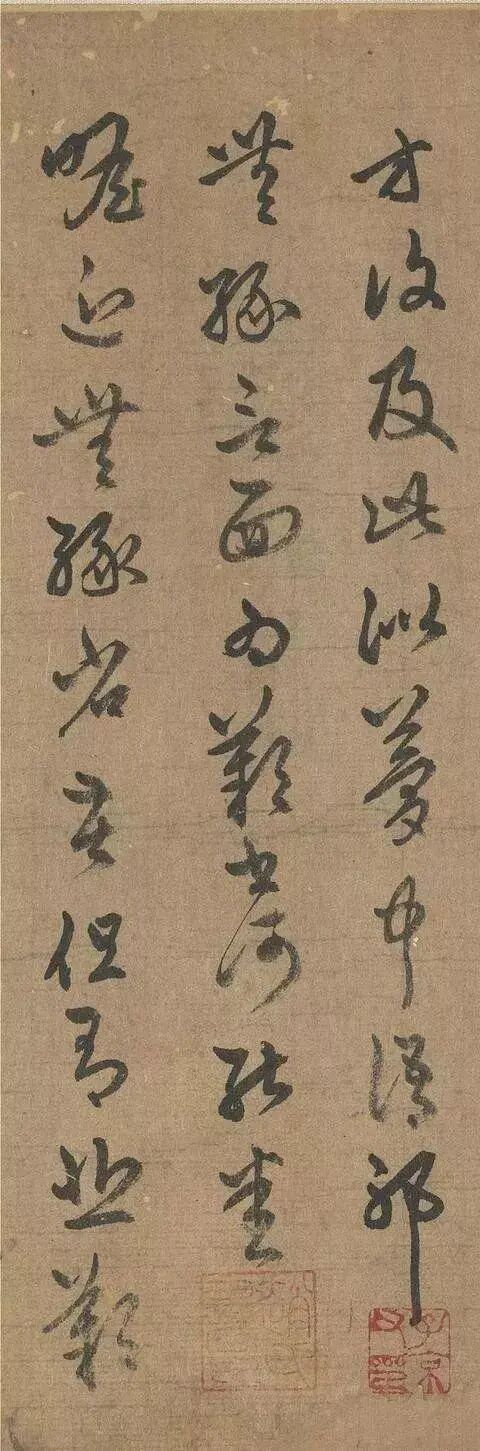 方復及此似夢中語耶
無緣言面為歎書何能悉
瞻近無緣省苦但有悲歎
子京父印